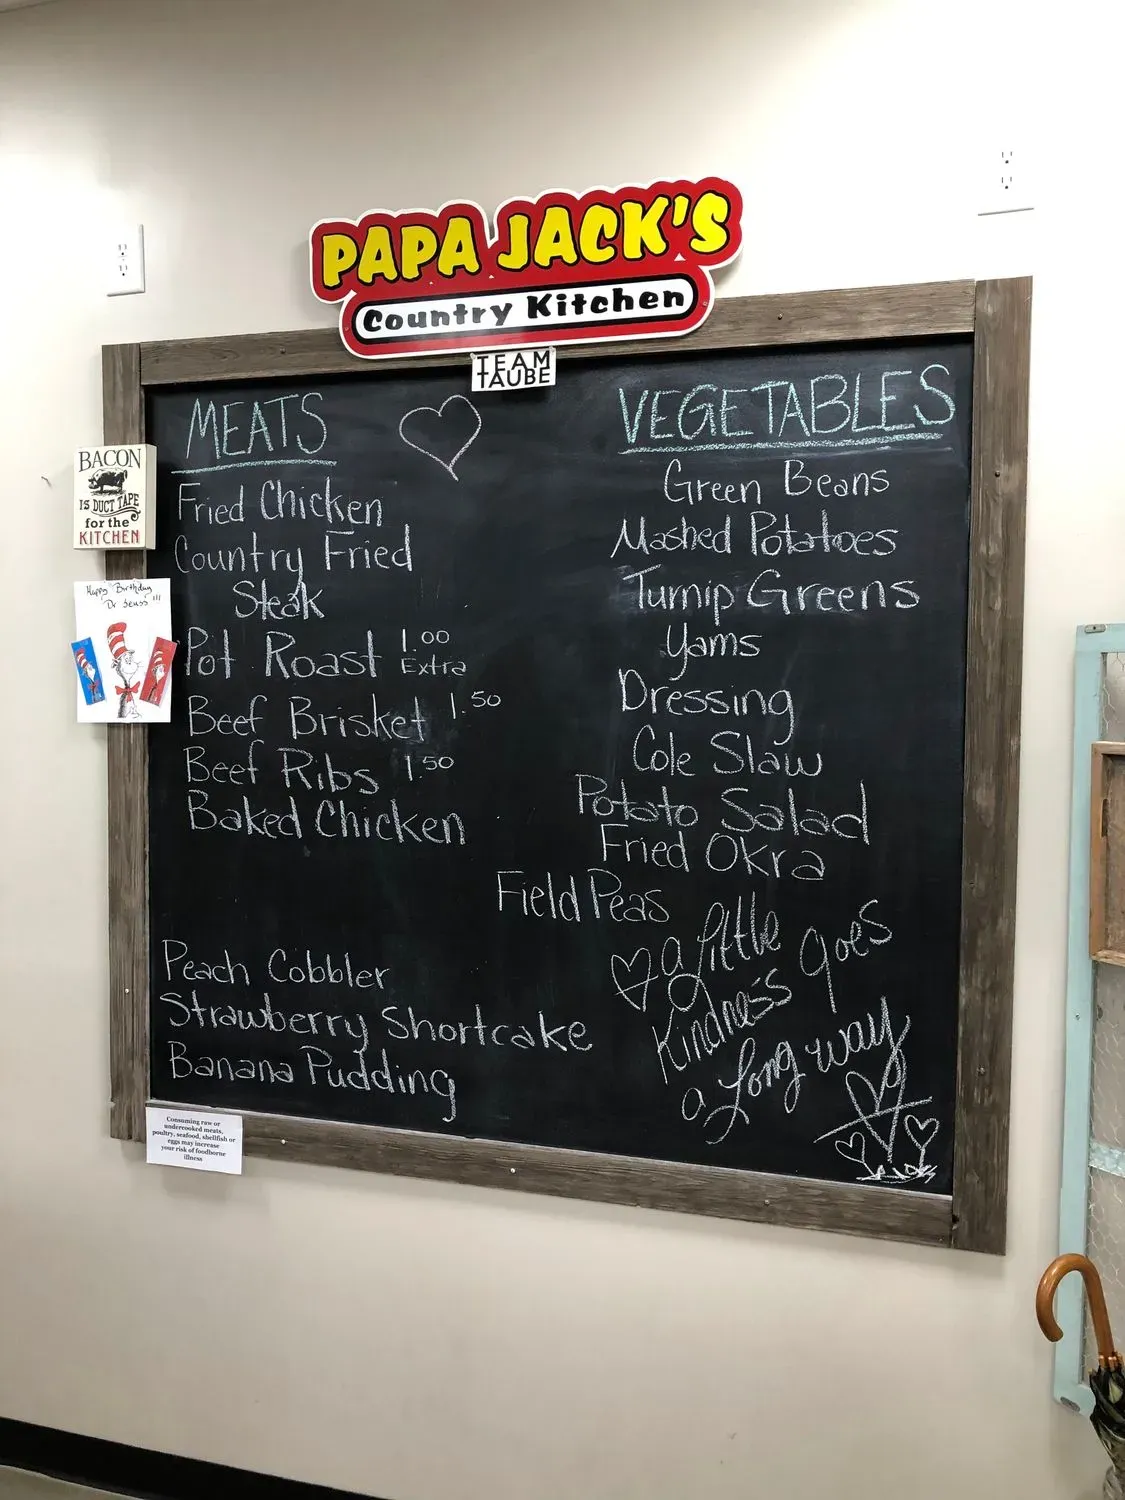 PAPA JACK'S
Country Kitchen
TEAM
TAUBE
MEATS
Fried Chicken
Country Fried
Steak
Pot Roast 1.00
Extra
Beef Brisket 1.50
Beef Ribs 1.50
Baked Chicken
Peach Cobbler
Strawberry Shortcake
Banana Pudding
VEGETABLES
Green Beans
Mashed Potatoes
Turnip Greens
Yams
Dressing
Cole Slaw
Potato Salad
Fried Okra
Field Peas
a little
Kindness goes
a long way
BACON
IS DUCT TAPE
for the
KITCHEN
Happy Birthday
Dr Seuss!!!
Consuming raw or
undercooked meats,
poultry, seafood, shellfish or
eggs may increase
your risk of foodborne
illness